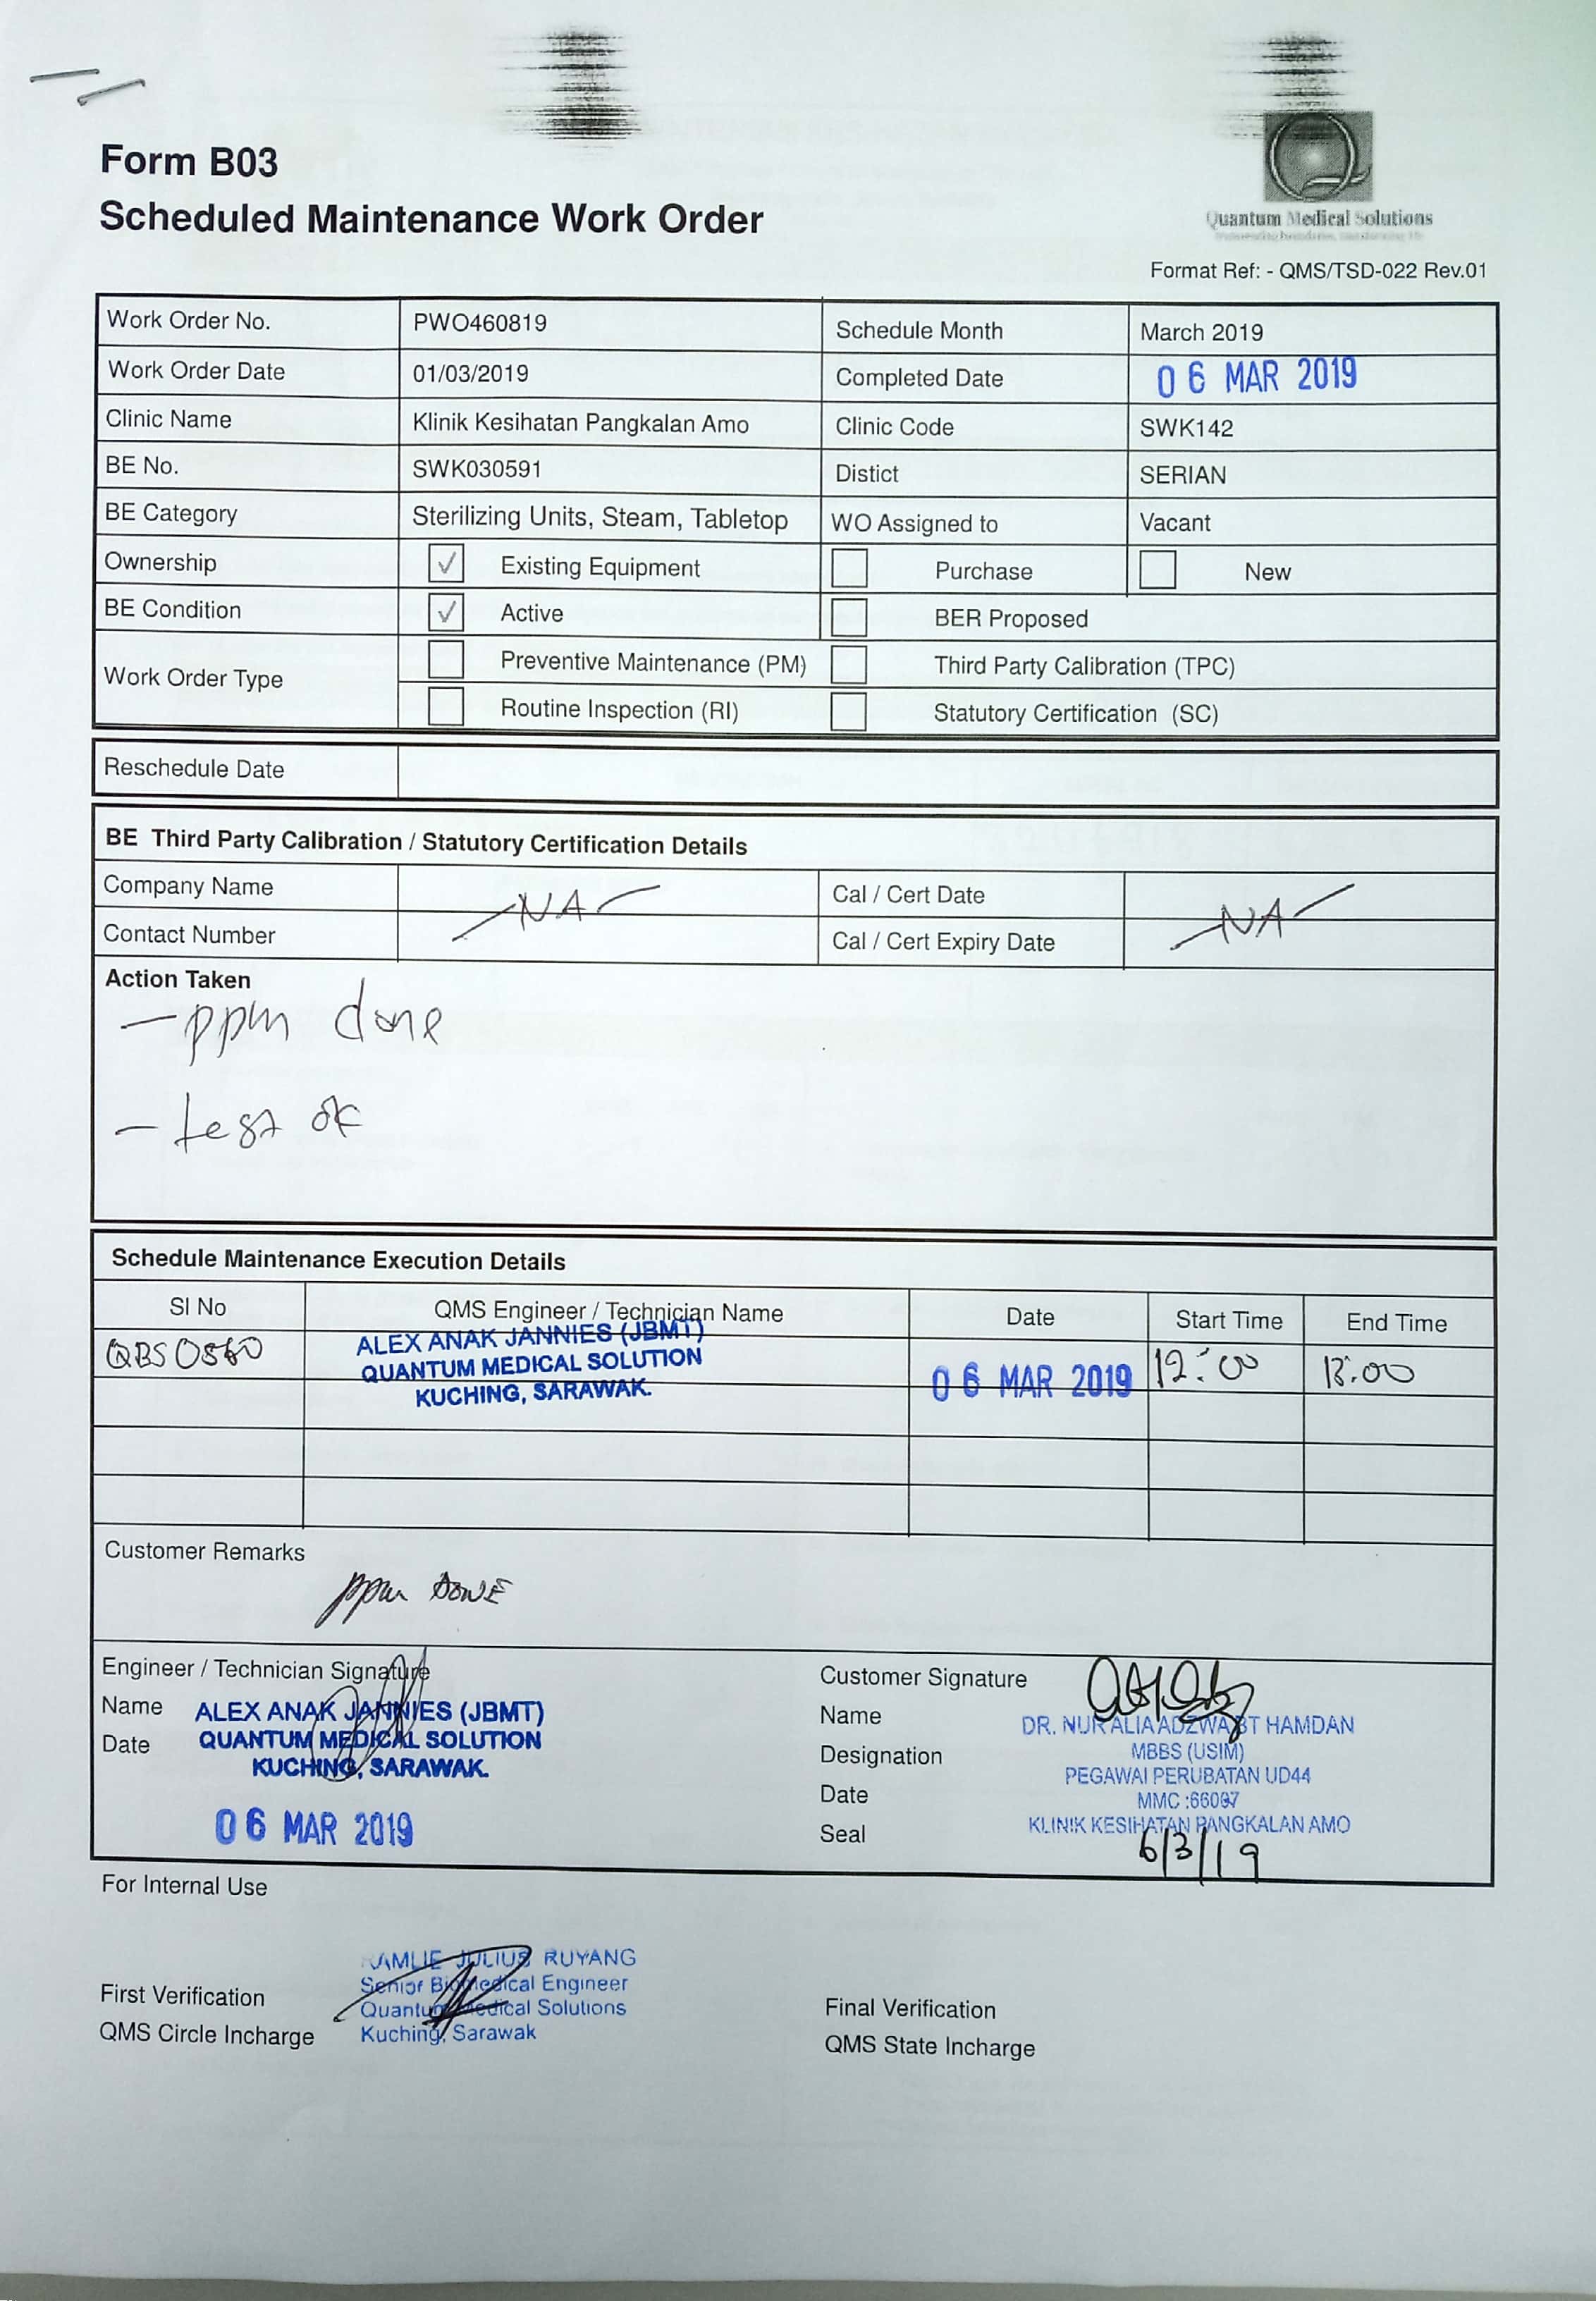 Form B03
Scheduled Maintenance Work Order
Quantum Medical Solutions
Format Ref: - QMS/TSD-022 Rev.01
Work Order No. PWO460819 Schedule Month March 2019
Work Order Date 01/03/2019 Completed Date 06 MAR 2019
Clinic Name Klinik Kesihatan Pangkalan Amo Clinic Code SWK142
BE No. SWK030591 Distict SERIAN
BE Category Sterilizing Units, Steam, Tabletop WO Assigned to Vacant
Ownership ✓ Existing Equipment Purchase New
BE Condition ✓ Active BER Proposed
Work Order Type
Preventive Maintenance (PM) Third Party Calibration (TPC)
Routine Inspection (RI) Statutory Certification (SC)
Reschedule Date
BE Third Party Calibration / Statutory Certification Details
Company Name NA Cal / Cert Date NA
Contact Number Cal / Cert Expiry Date
Action Taken
- ppm done
- test ok
Schedule Maintenance Execution Details
SI No QMS Engineer / Technician Name Date Start Time End Time
QBS0560 ALEX ANAK JANNIES (JBMT) 06 MAR 2019 12:00 13:00
QUANTUM MEDICAL SOLUTION
KUCHING, SARAWAK.
Customer Remarks
ppm DONE
Engineer / Technician Signature
Name ALEX ANAK JANNIES (JBMT)
Date QUANTUM MEDICAL SOLUTION
KUCHING, SARAWAK.
06 MAR 2019
Customer Signature
Name DR. NUR ALIA ADZWA BT HAMDAN
Designation MBBS (USIM)
PEGAWAI PERUBATAN UD44
Date MMC :66097
Seal KLINIK KESIHATAN PANGKALAN AMO
6/3/19
For Internal Use
RAMLIE JULIUS RUYANG
Senior Biomedical Engineer
Quantum Medical Solutions
Kuching, Sarawak
First Verification
QMS Circle Incharge
Final Verification
QMS State Incharge